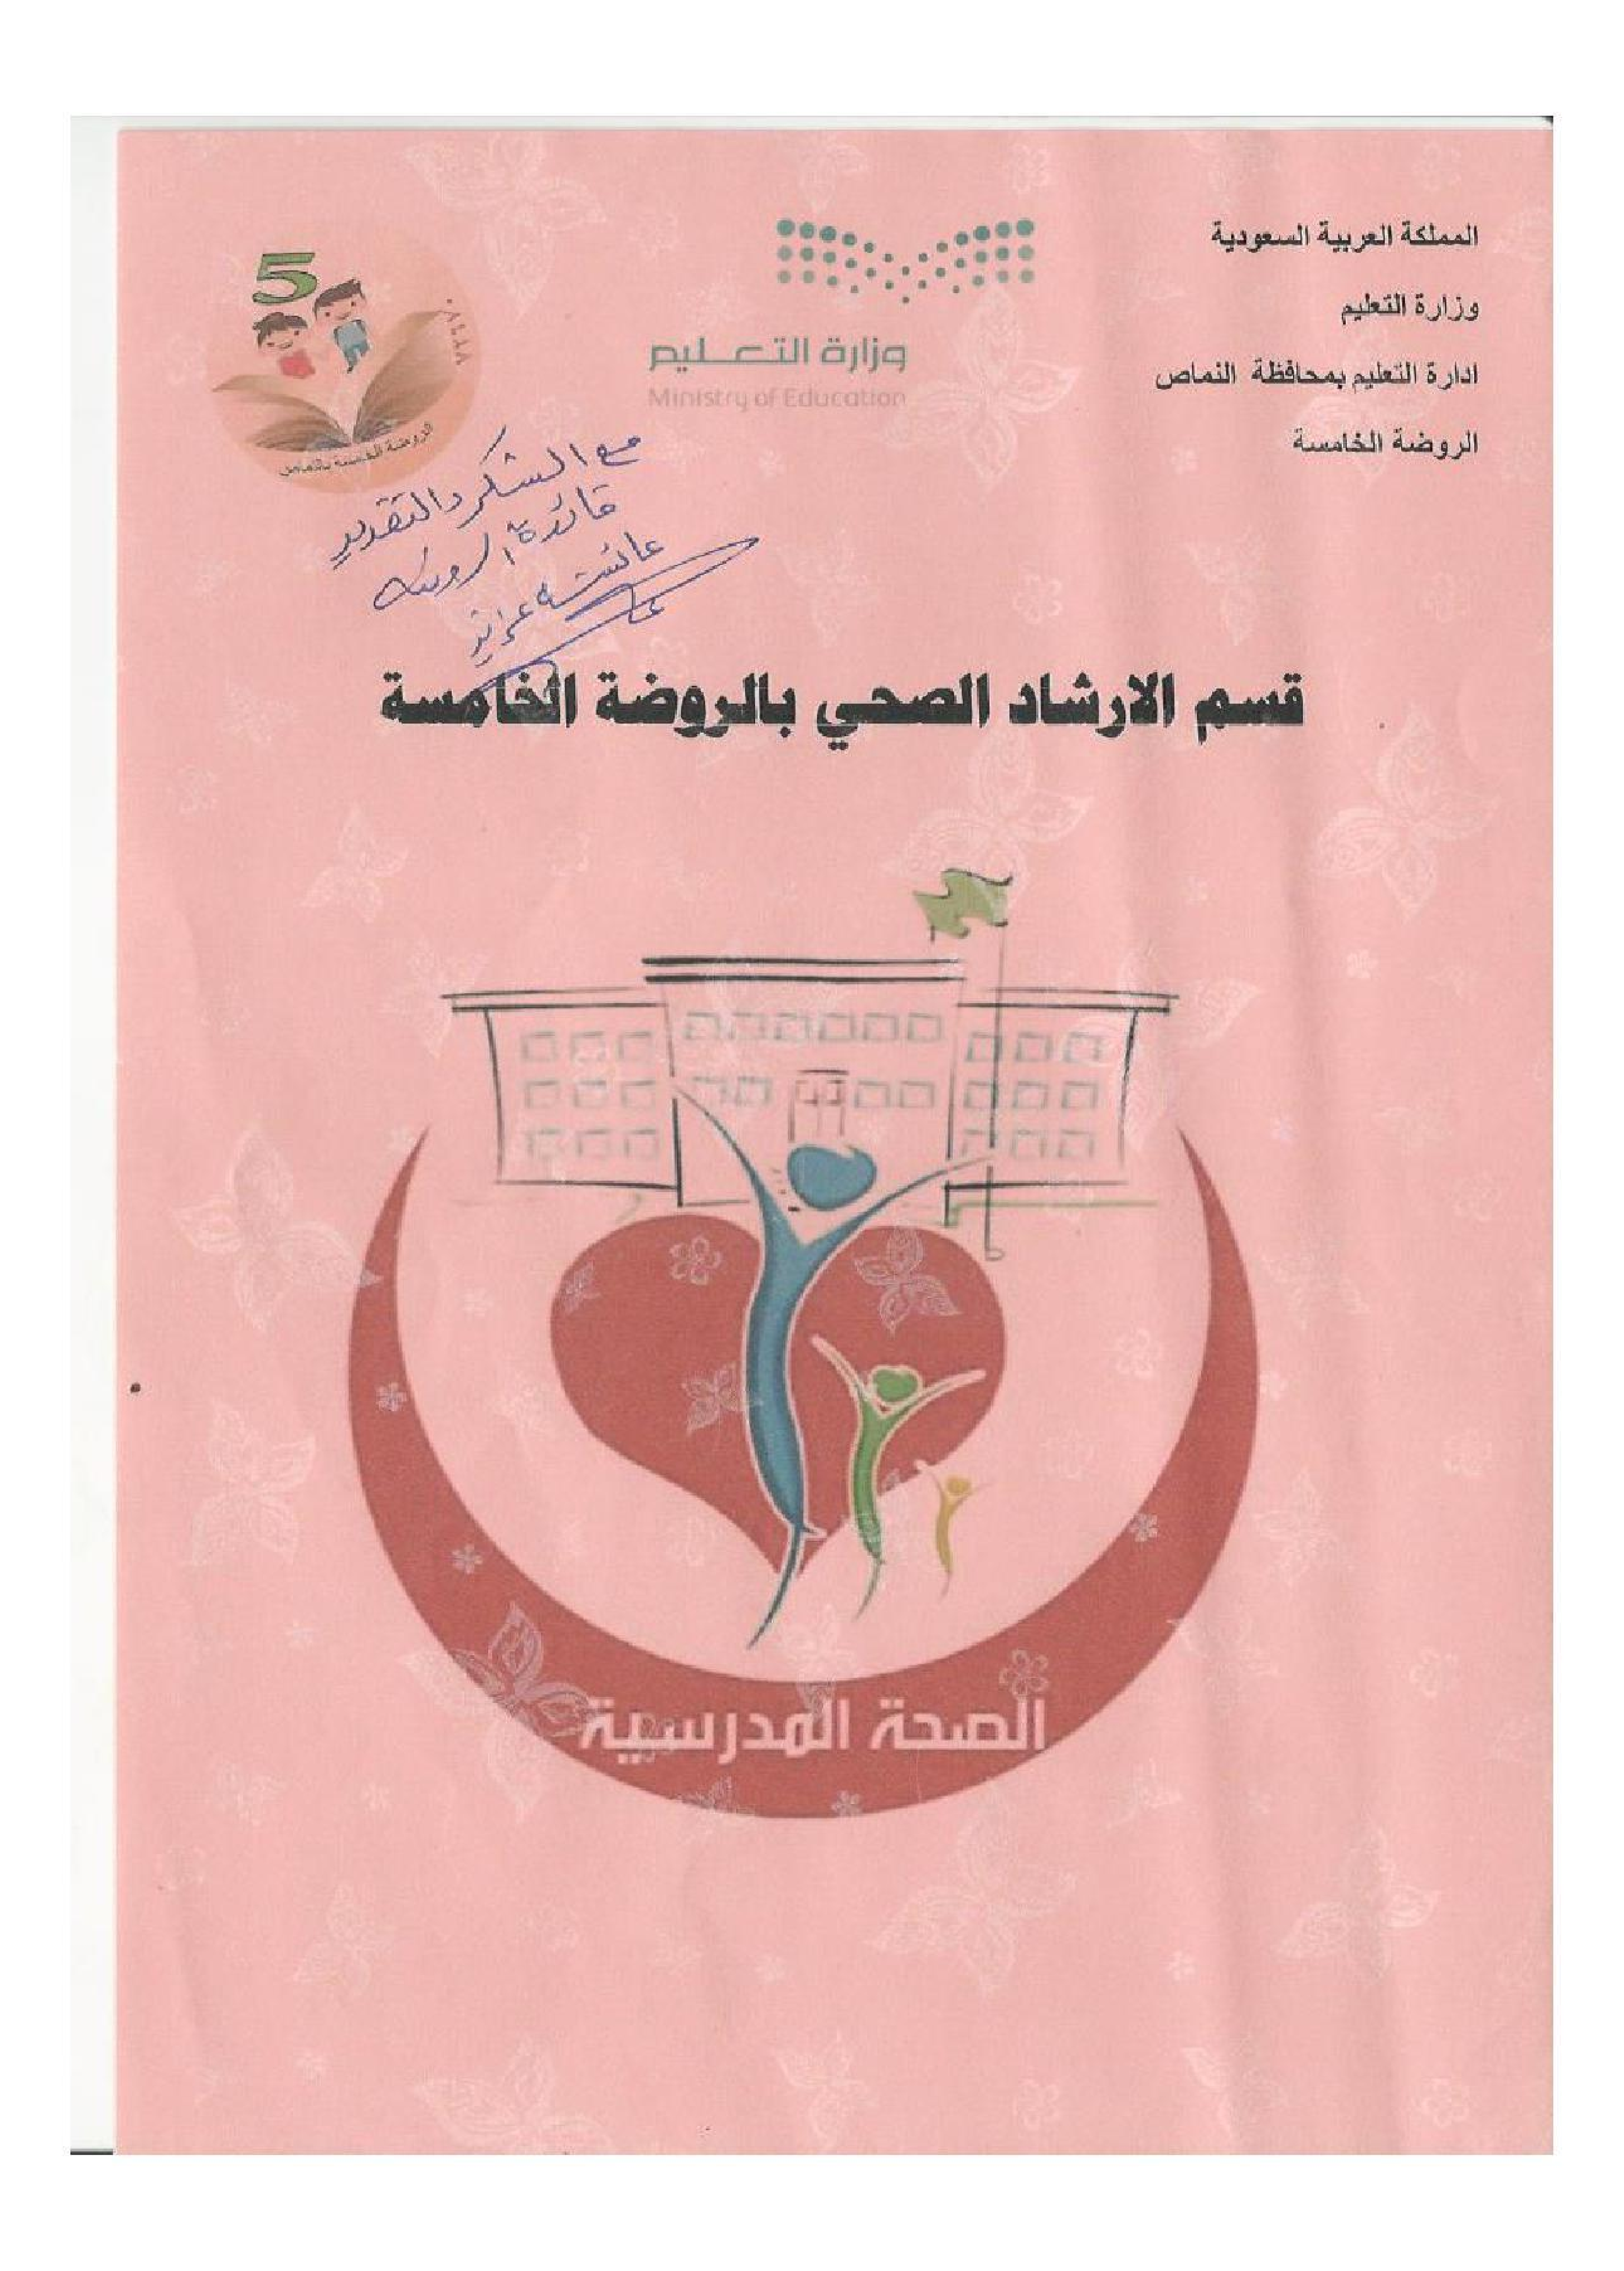 المملكة العربية السعودية
وزارة التعليم
ادارة التعليم بمحافظة النماص
الروضة الخامسة
وزارة التعليم
Ministry of Education
5
الروضة الخامسة بالنماص
مع الشكر والتقدير
قائدة الروضة
عائشة
قسم الارشاد الصحي بالروضة الخامسة
الصحة المدرسية